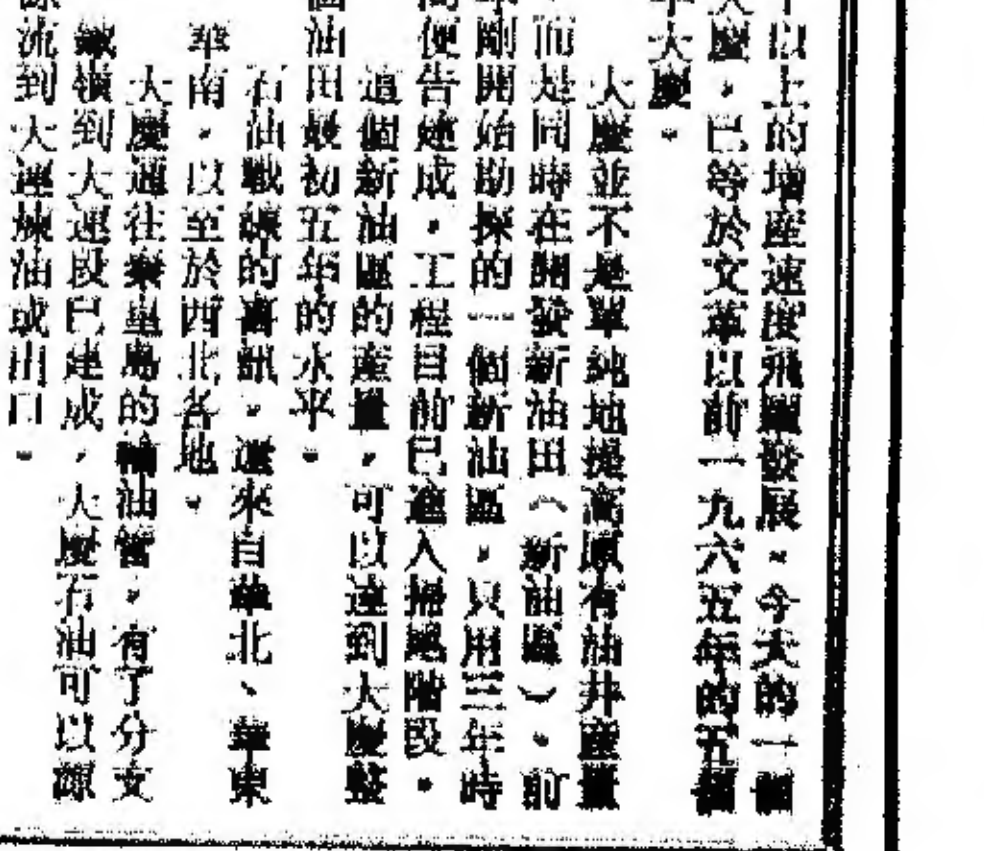 以上的增產速度飛躍發展。今天的一個
大慶，已等於文革以前一九六五年的五個
大慶。
大慶並不是單純地提高原有油井產量
，而是同時在開發新油田（新油區）。前
年剛開始勘探的一個新油區，只用三年時
間便告建成，工程目前已進入掃尾階段。
這個新油區的產量，可以達到大慶整
個油田最初五年的水平。
石油戰線的喜訊，還來自華北、華東
、華南，以至於西北各地。
大慶通往秦皇島的輸油管，有了分支
鐵嶺到大連段已建成，大慶石油可以源
源流到大連煉油或出口。